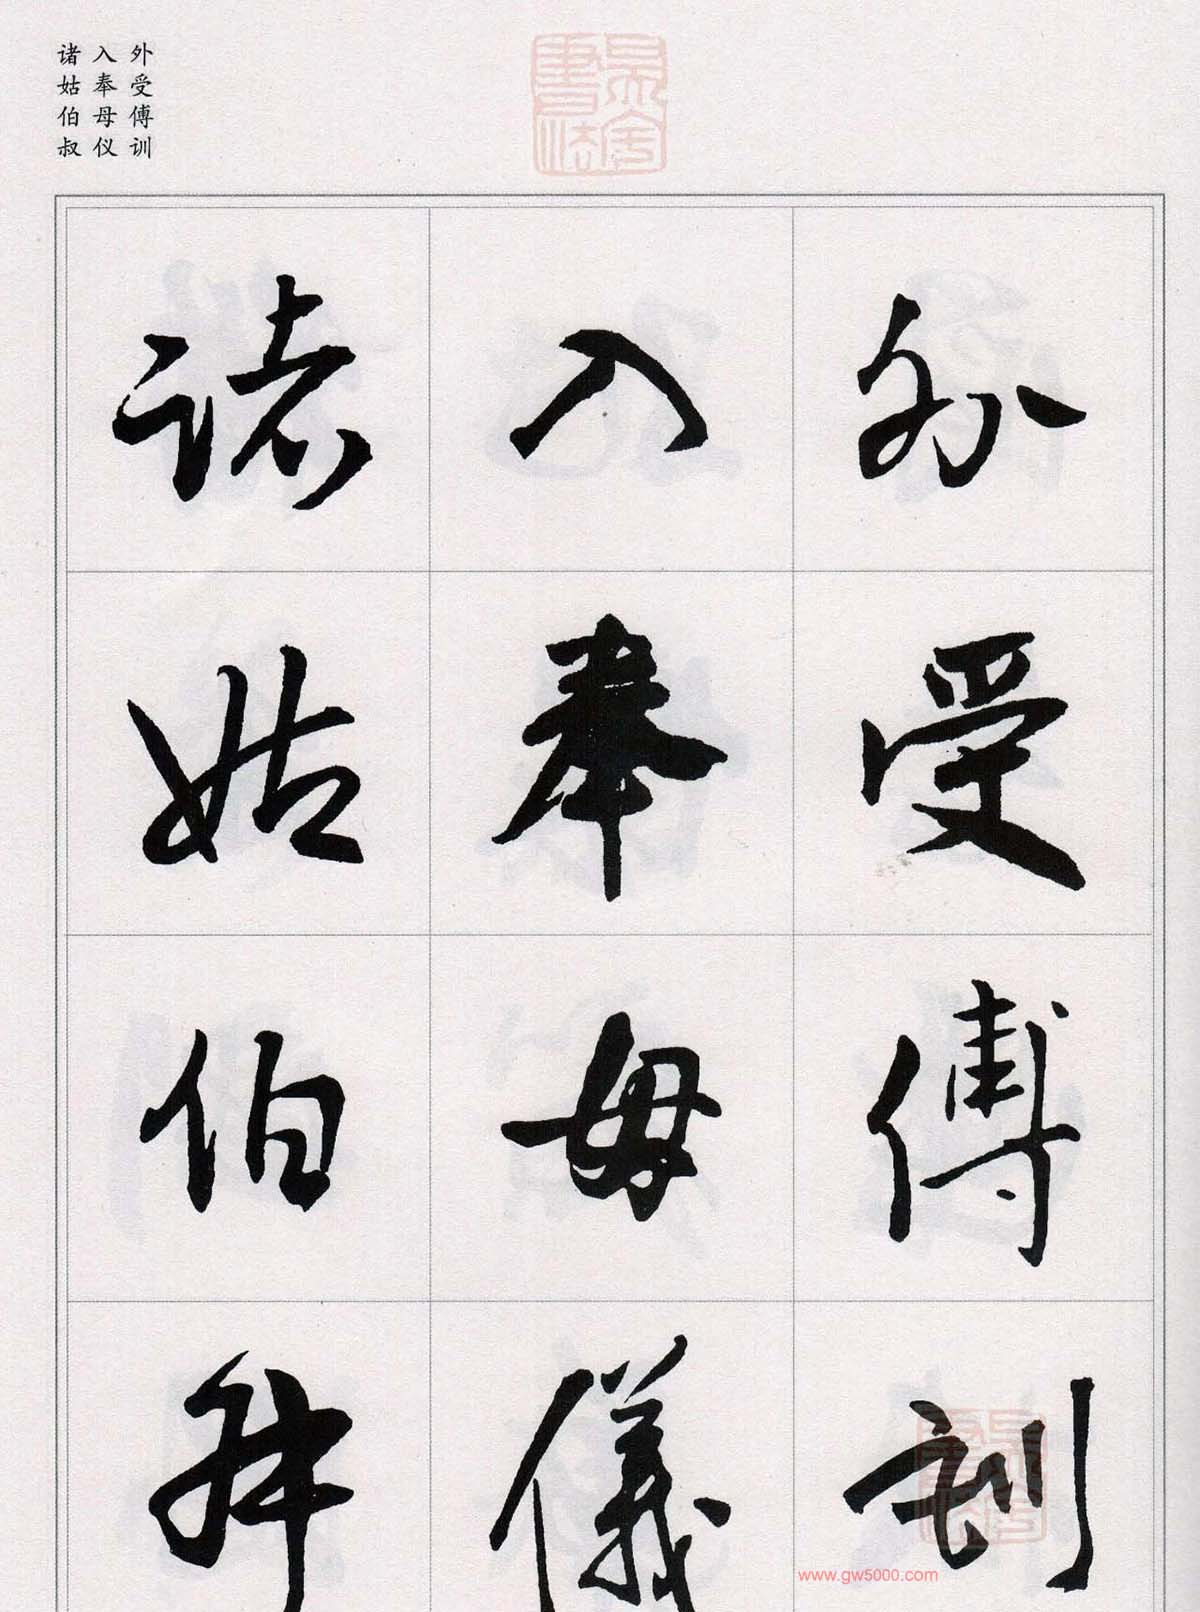 外受傅训
入奉母仪
诸姑伯叔
外受傅訓
入奉母儀
諸姑伯叔
www.gw5000.com